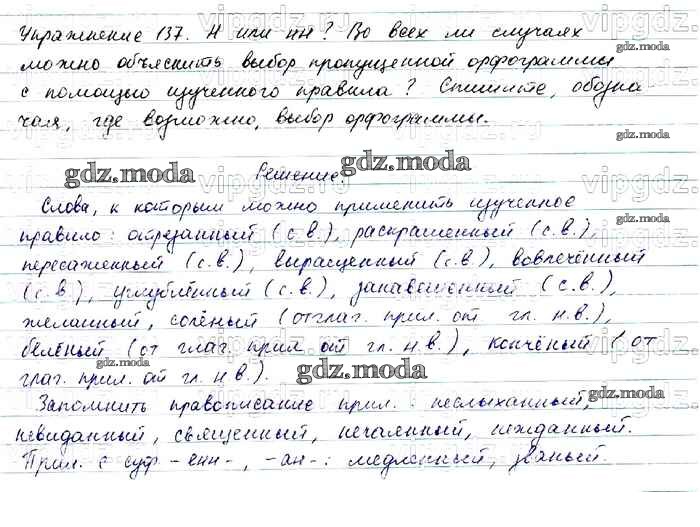 Упражнение 137. Н или нн? Во всех ли случаях
можно объяснить выбор пропущенной орфограммы
с помощью изученного правила? Спишите, обозна
чая, где возможно, выбор орфограммы.
Решение
Слова, к которым можно применить изученное
правило: отрезанный (с.в.), раскрашенный (с.в.),
пересаженный (с.в.), выращенный (с.в), вовлечённый
(с.в), углублённый (с.в.), занавешенный (с.в.),
желанный, солёный (отглаг. прил. от гл. н.в.),
белёный (от глаг. прил от гл. н.в.), копчёный (от
глаг. прил. от гл. н.в.).
Запомнить правописание прил.: неслыханный,
невиданный, священный, нечаянный, нежданный.
Прил. с суф -енн-, -ан-: медленный, званый.
gdz.moda
vipgdz.ru